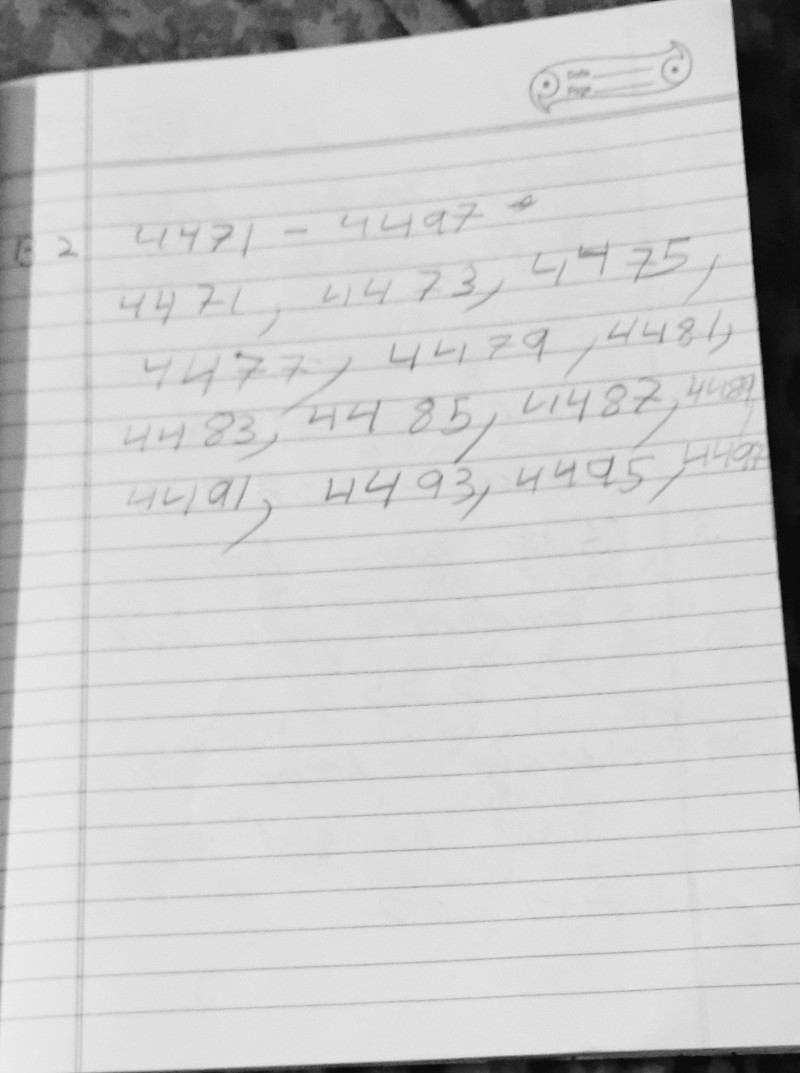 Date
Page
E 2 4471 - 4497
4471, 4473, 4475,
4477, 4479, 4481,
4483, 4485, 4487, 4489,
4491, 4493, 4495, 4497